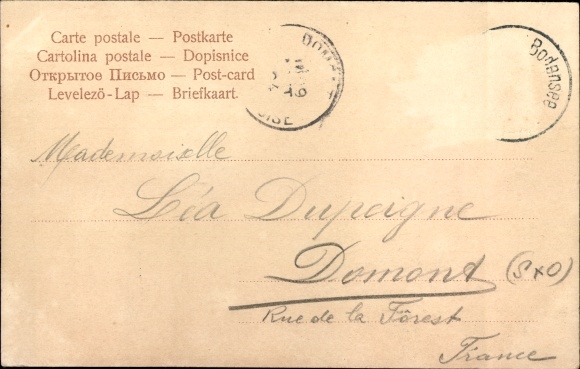 Carte postale — Postkarte
Cartolina postale — Dopisnice
Открытое Письмо — Post-card
Levelező-Lap — Briefkaart.
OISE
Bodensee
Mademoiselle
Léa Dupeigne
Domont (S x O)
Rue de la Fôrest
France